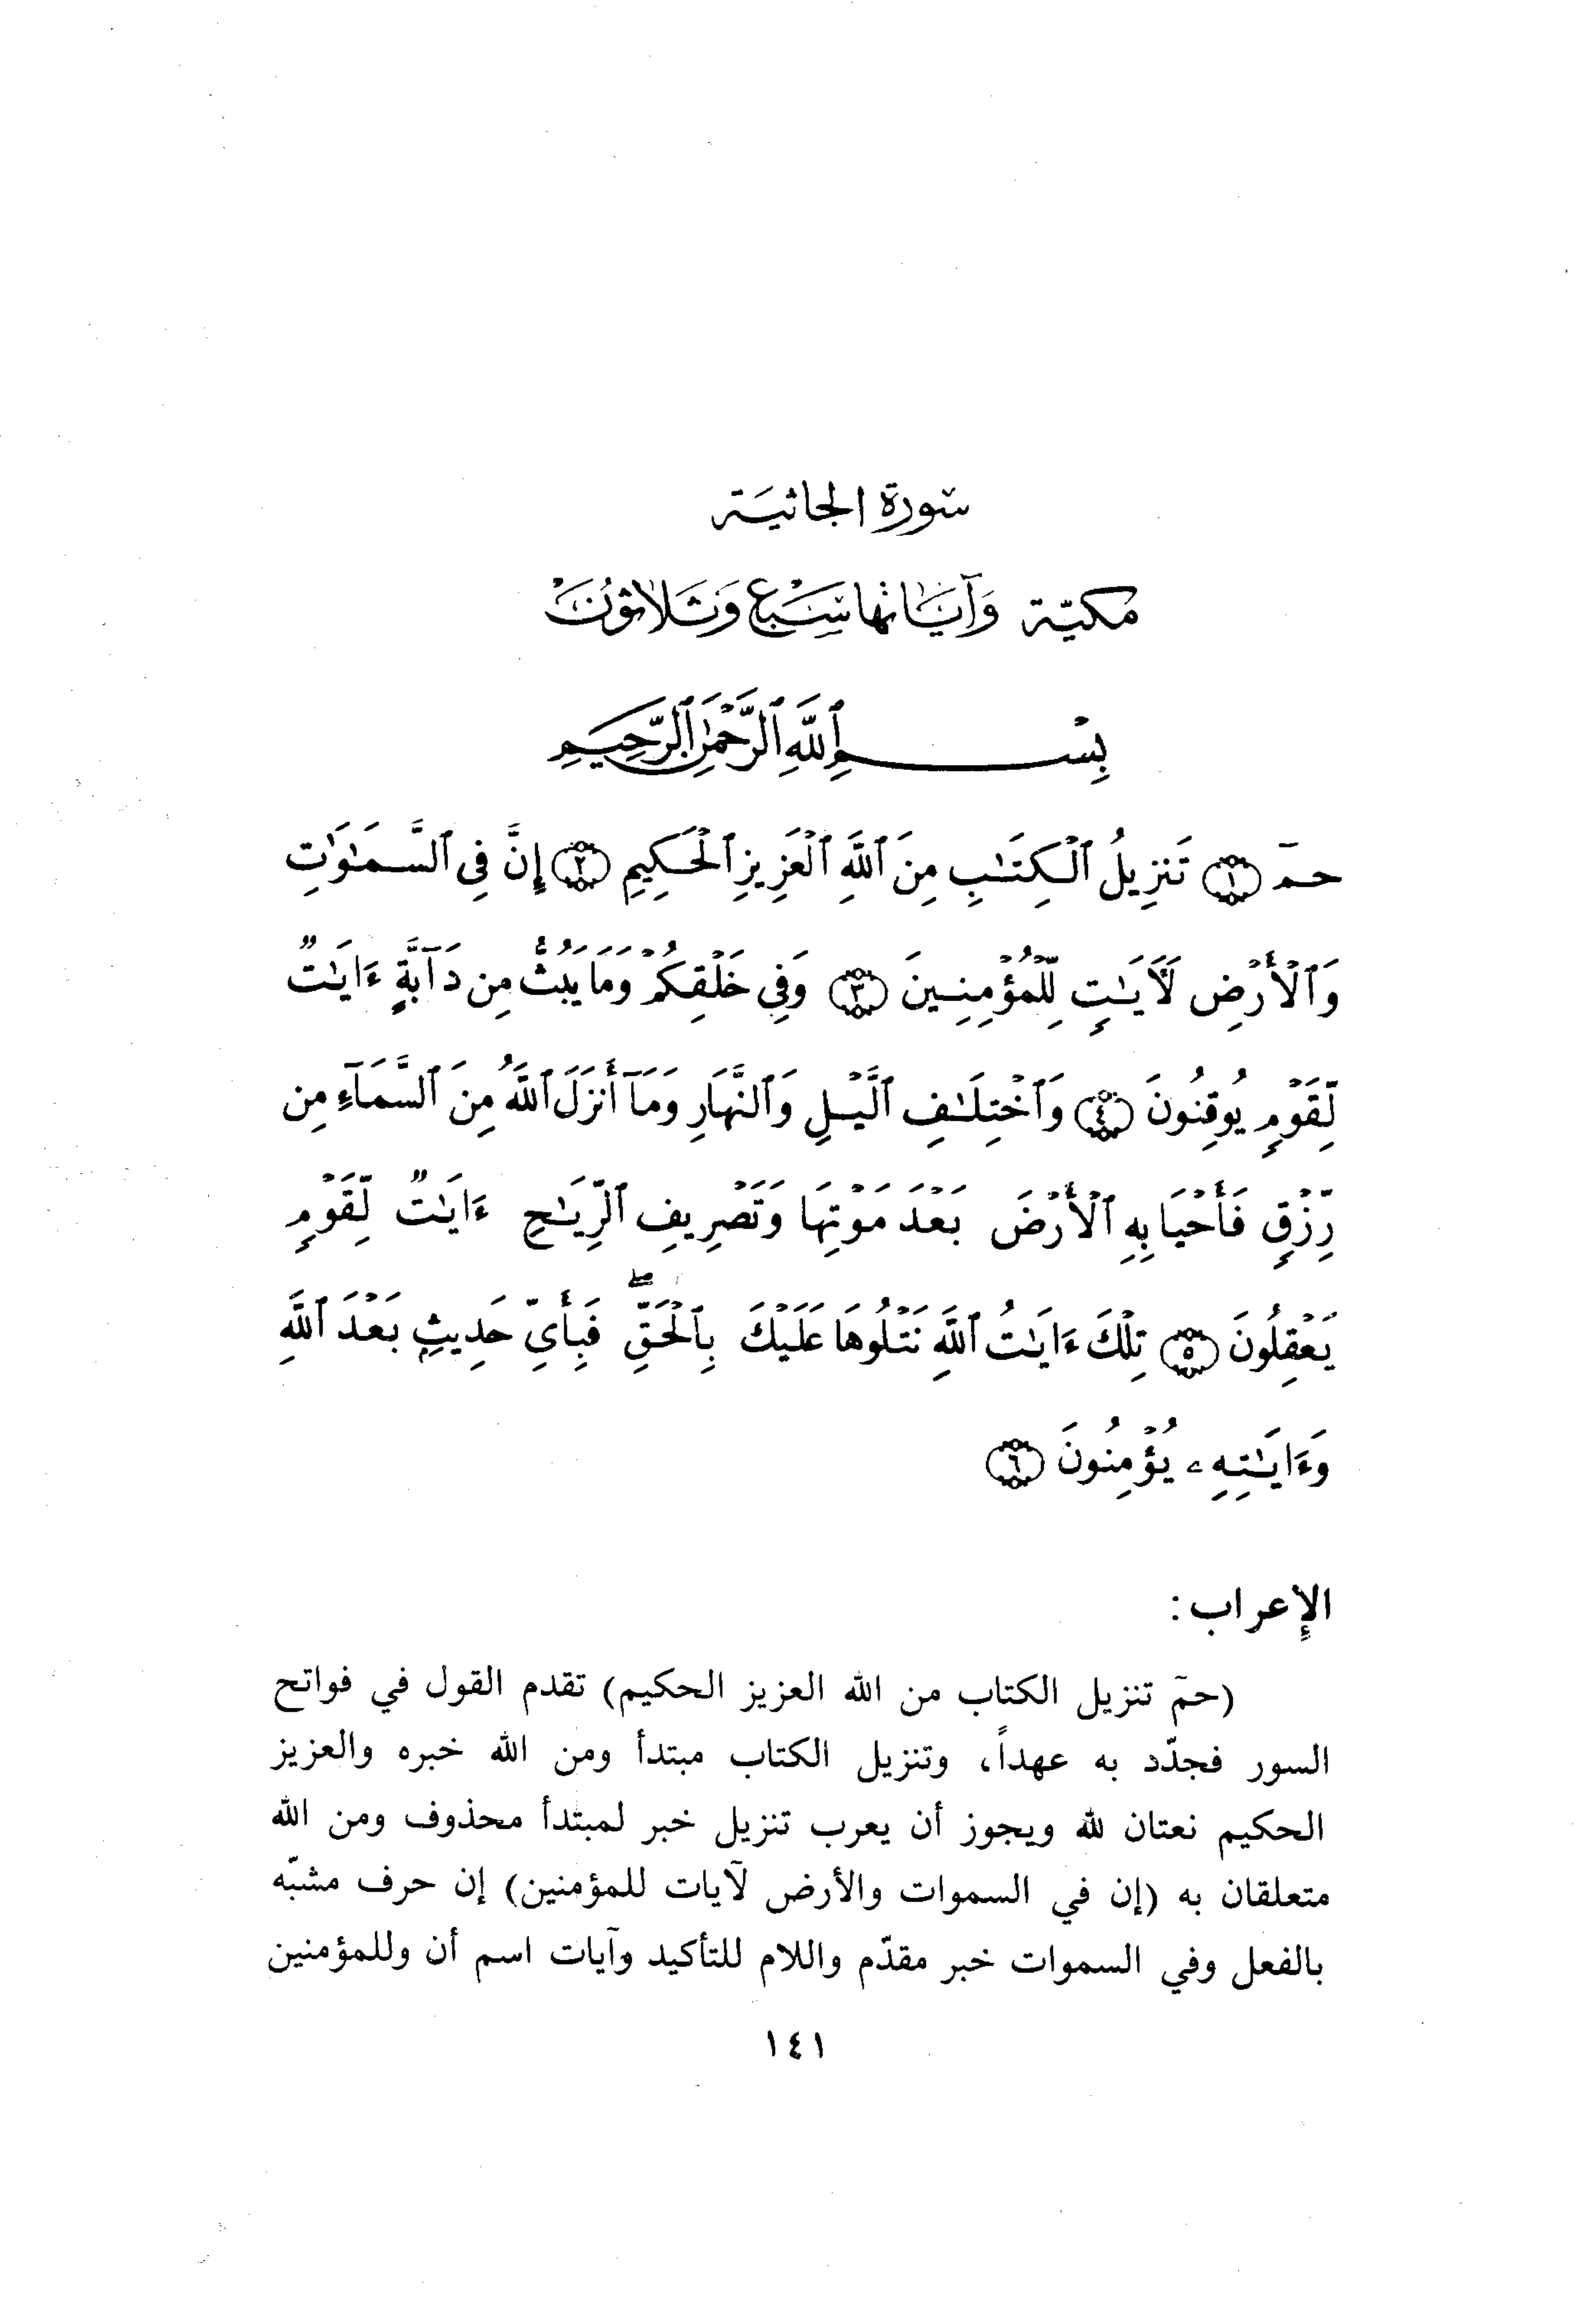 سورة الجاثية
مكيّة وَآيَاتها سَبْع وَثَلاثونَ
بِسْمِ ٱللَّهِ ٱلرَّحْمَٰنِ ٱلرَّحِيمِ
حمٓ ﴿١﴾ تَنزِيلُ ٱلْكِتَٰبِ مِنَ ٱللَّهِ ٱلْعَزِيزِ ٱلْحَكِيمِ ﴿٢﴾ إِنَّ فِى ٱلسَّمَٰوَٰتِ
وَٱلْأَرْضِ لَءَايَٰتٍ لِّلْمُؤْمِنِينَ ﴿٣﴾ وَفِى خَلْقِكُمْ وَمَا يَبُثُّ مِن دَآبَّةٍ ءَايَٰتٌ
لِّقَوْمٍ يُوقِنُونَ ﴿٤﴾ وَٱخْتِلَٰفِ ٱلَّيْلِ وَٱلنَّهَارِ وَمَآ أَنزَلَ ٱللَّهُ مِنَ ٱلسَّمَآءِ مِن
رِّزْقٍ فَأَحْيَا بِهِ ٱلْأَرْضَ بَعْدَ مَوْتِهَا وَتَصْرِيفِ ٱلرِّيَٰحِ ءَايَٰتٌ لِّقَوْمٍ
يَعْقِلُونَ ﴿٥﴾ تِلْكَ ءَايَٰتُ ٱللَّهِ نَتْلُوهَا عَلَيْكَ بِٱلْحَقِّ ۖ فَبِأَىِّ حَدِيثٍۭ بَعْدَ ٱللَّهِ
وَءَايَٰتِهِۦ يُؤْمِنُونَ ﴿٦﴾
الإعراب :
(حمّ تنزيل الكتاب من الله العزيز الحكيم) تقدم القول في فواتح
السور فجدّد به عهداً، وتنزيل الكتاب مبتدأ ومن الله خبره والعزيز
الحكيم نعتان لله ويجوز أن يعرب تنزيل خبر لمبتدأ محذوف ومن الله
متعلقان به (إن في السموات والأرض لآيات للمؤمنين) إن حرف مشبّه
بالفعل وفي السموات خبر مقدّم واللام للتأكيد وآيات اسم أن وللمؤمنين
١٤١